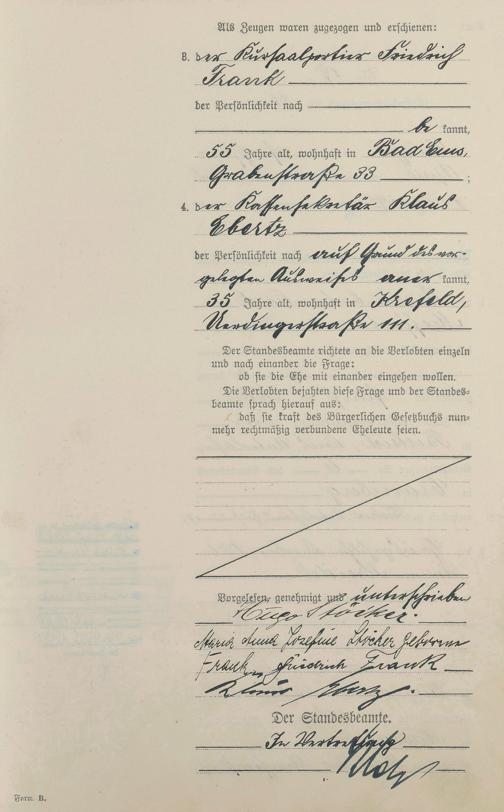 Als Zeugen waren zugezogen und erschienen:
3. der Kursaalportier Friedrich
Frank
der Persönlichkeit nach
be kannt,
55 Jahre alt, wohnhaft in Bad Ems,
Grabenstraße 33 ;
4. der Kassensekretär Klaus
Ebertz
der Persönlichkeit nach auf Grund des vor-
gelegten Ausweises aner kannt,
35 Jahre alt, wohnhaft in Krefeld,
Uerdingerstraße 111.
Der Standesbeamte richtete an die Verlobten einzeln
und nach einander die Frage:
ob sie die Ehe mit einander eingehen wollen.
Die Verlobten bejahten diese Frage und der Standes-
beamte sprach hierauf aus:
daß sie kraft des Bürgerlichen Gesetzbuchs nun-
mehr rechtmäßig verbundene Eheleute seien.
Vorgelesen, genehmigt und unterschrieben
Hugo Stöcker.
Maria Anna Josefine Stöcker geborene
Frank, Friedrich Frank
Klaus Ebertz.
Der Standesbeamte.
In Vertretung
Form. B.